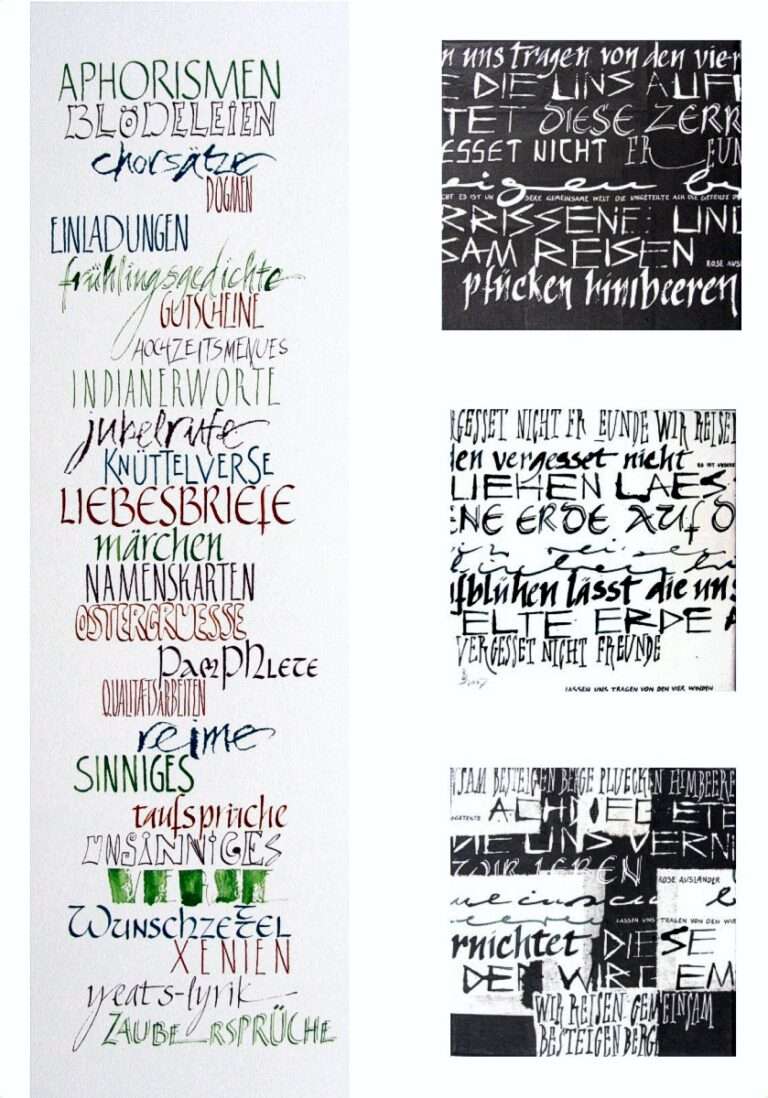 APHORISMEN
BLÖDELEIEN
chorsätze
DOGMEN
EINLADUNGEN
frühlingsgedichte
GUTSCHEINE
HOCHZEITSMENUES
INDIANERWORTE
jubelrufe
KNÜTTELVERSE
LIEBESBRIEFE
märchen
NAMENSKARTEN
OSTERGRUESSE
PAMPHLETE
QUALITÄTSARBEITEN
reime
SINNIGES
taufsprüche
UNSINNIGES
VERSE
WUNSCHZETTEL
XENIEN
yeats-lyrik
ZAUBERSPRÜCHE
n uns tragen von den vier
E DIE UNS AUF
TET DIESE ZERR
ESSET NICHT FREUN
eigen
DERE GEMEINSAME WELT DIE UNGETEILTE ACH DIE GETEILTE
RRISSENE UND
SAM REISEN
ROSE AUS
pflücken himbeeren
RGESSET NICHT FREUNDE WIR REISEN
den vergesset nicht
ES IST UNSERE
LIEHEN LAES
ENE ERDE AUF D
ufblühen lässt die uns
ELTE ERDE
VERGESSET NICHT FREUNDE
LASSEN UNS TRAGEN VON DEN VIER WINDEN
NSAM BESTEIGEN BERGE PLUECKEN HIMBEERE
ACH DIE GETE
DIE UNS VERNI
WIR LEBEN
ROSE AUSLÄNDER
LASSEN UNS TRAGEN VON DEN VIER
rnichtet DIESE
DER WIR GEM
WIR REISEN GEMEINSAM
BESTEIGEN BERGE